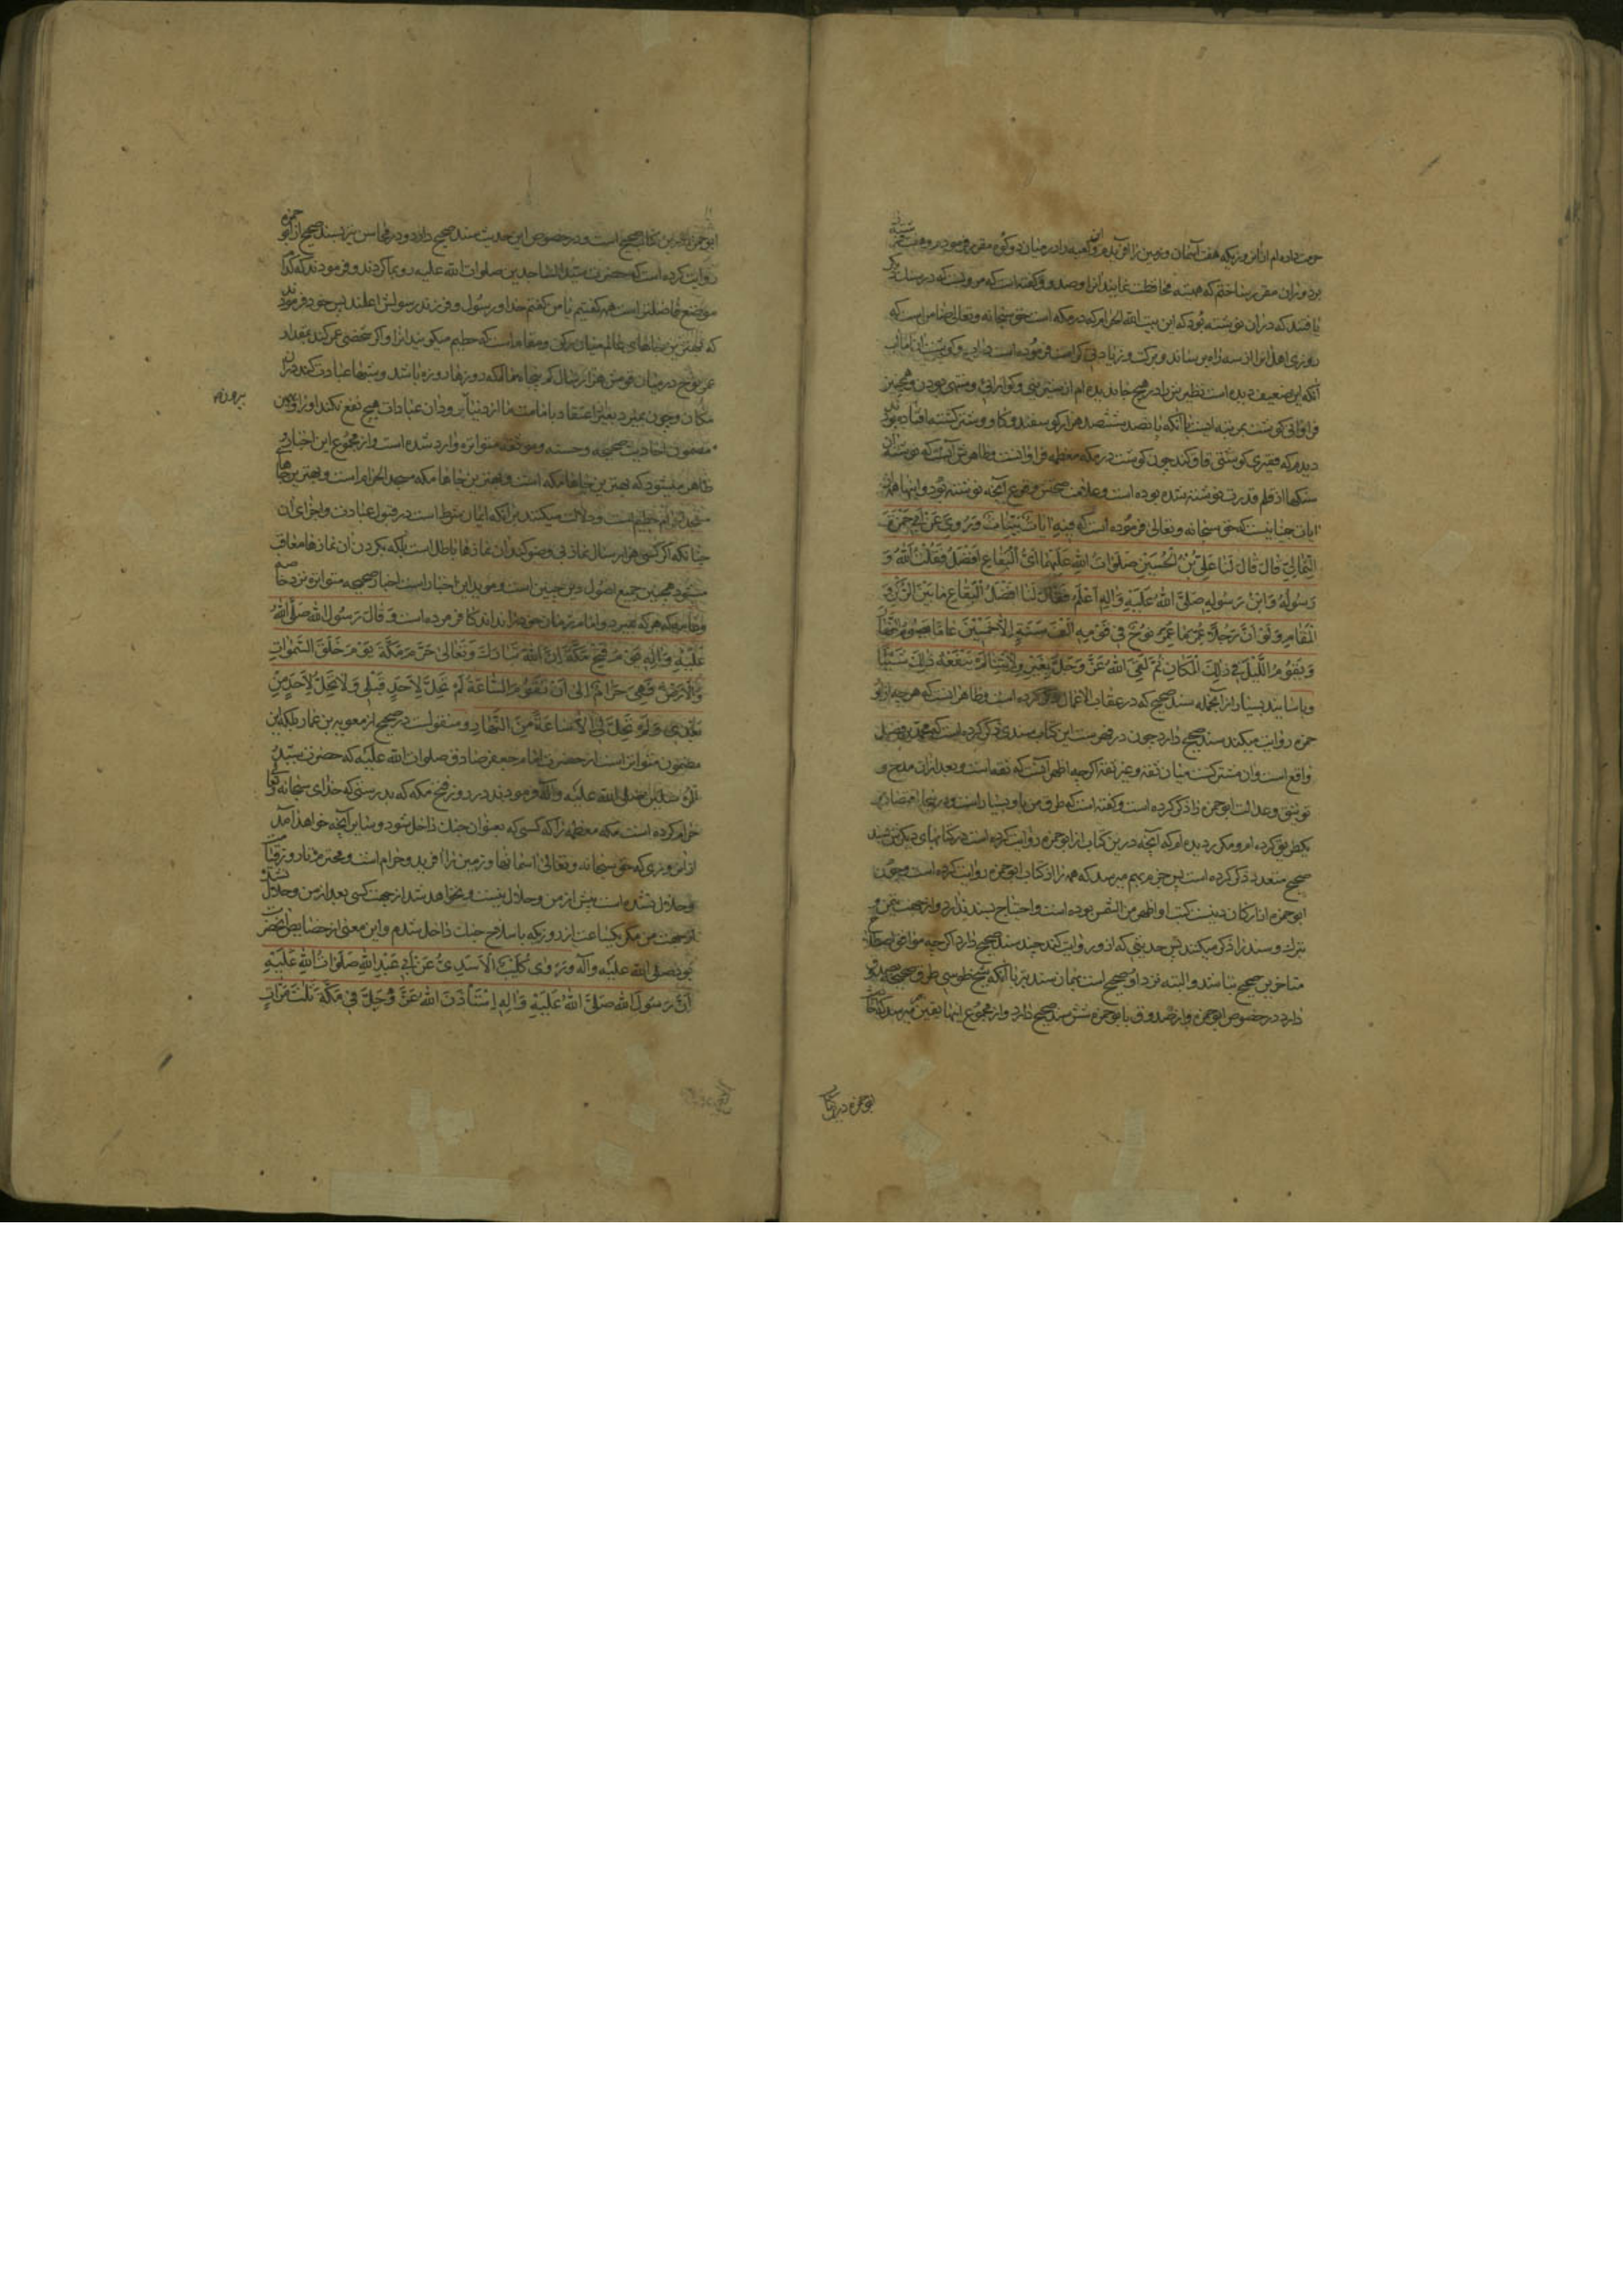 حرمت داده‌ام ازان روزیکه هفت آسمان و زمین را آفریدم و کعبه را در میان دو کوه مقرر فرمودم و هفت
بر دوران مقرر ساختم که همیشه محافظت نمایند آنرا و صدوق گفته است که مرویست که در سنک دیکر
یافتند که دران نوشته بود که این بیت الله الحرام که در مکه است حق سبحانه و تعالی ضامن است که
روزی اهل انرا از سه راه برساند و برکت
آنکه این ضعیف دیده است نظیرین را در هیچ جا ندیده‌ام از
فراوانی کوشت بمرتبه ایست با آنکه پانصد ششصد هزار کوسفند و کاو و شتر کشته
دیدم که فقیری کوشتی
سنکها از قلم قدرت نوشته شده بوده است و علامت صحتش وقوع آنچه نوشته بود و اینها همه از
ایات جنابیست که حق سبحانه و تعالی فرموده است که فیهِ ایاتٌ بَیِّناتٌ وَ رُوِیَ عَنْ اَبی حَمْزَةَ
الثُّمالِیِّ قالَ قالَ لَنا عَلِیُّ بْنُ الْحُسَیْنِ صَلَواتُ اللهِ عَلَیْهِما اَیُّ الْبِقاعِ اَفْضَلُ فَقُلْتُ اَللهُ وَ
رَسُولُهُ وَ ابْنُ رَسُولِهِ صَلَّی اللهُ عَلَیْهِ وَ الِهِ اَعْلَمُ فَقالَ لَنا اَفْضَلُ الْبِقاعِ ما بَیْنَ الرُّکْنِ وَ
الْمَقامِ وَ لَوْ اَنَّ رَجُلاً عُمِّرَ ما عُمِّرَ نُوحٌ فی قَوْمِهِ اَلْفَ سَنَةٍ اِلاّ خَمْسینَ عاماً یَصُومُ النَّهارَ
وَ یَقُومُ اللَّیْلَ فی ذلِکَ الْمَکانِ ثُمَّ لَقِیَ اللهَ عَزَّ وَ جَلَّ بِغَیْرِ وِلایَتِنا لَمْ یَنْفَعْهُ ذلِکَ شَیْئاً
و باسانید بسیار از آنجمله بسند صحیح که در عقاب الاعمال ذکر کرده است و ظاهر است که هر چه از ابو
حمزه روایت میکند سند صحیح دارد چون در فهرست این کتاب سندی ذکر کرده است که محمد بن فضیل
واقع است و ان مشترکست میان ثقه و غیر ثقه اکرچه اظهر آنست که ثقه است و بعد ازان مدح و
توثیق و عدالت ابو حمزه را ذکر کرده است و گفته است که طرق من باو بسیار است و در اینجا اقتصار
بیکطریق کرده‌ام و مکرر دیده‌ام که آنچه درین کتاب از ابو حمزه روایت کرده است در کتابهای دیکر بچند سند
صحیح متعدد ذکر کرده است پس جزم بهم میرسد که همه را از کتاب ابو حمزه روایت کرده است و چون
ابو حمزه از ارکان دینست کتب او اظهر من الشمس بوده است و احتیاج بسند ندارد و از جهت تیمن و
تبرک و سند را ذکر میکنند پس حدیثی که از و روایت کند چند سند صحیح دارد اکر چه موافق اصطلاح
متاخرین صحیح نباشد و البته نزد او صحیح است بهمان سند نیز با آنکه شیخ طوسی طرق صحیحه بصدوق
دارد در خصوص ابو حمزه و از صدوق با ابو حمزه شش سند صحیح دارد و از مجموع اینها یقین بهم میرسد که کتاب
ابو حمزه در کتاب
ابو حمزه نزد این کتاب صحیح است و در خصوص این حدیث سند صحیح دارد و در محاسن نیز بسند صحیح از ابو حمزه
روایت کرده است که حضرت سید الساجدین صلوات الله علیه رو بما کردند و فرمودند که کدام
موضع فاضلتر است همه کفتیم یا من کفتم خدا و رسول و فرزند رسولش اعلمند پس خود فرمودند
که بهترین بقعهای عالم میان رکن و مقام است که حطیم میکویند انرا و اکر شخصی عمر کند بمقدار
عمر نوح در میان قومش هزار سال کم پنجاه سال که روزها روزه باشد و شبها عبادت کند دران
مکان و چون بمیرد بغیر اعتقاد بامامت ما از دنیا بیرون رود ان عبادات هیچ نفع نکند او را و این
مضمون احادیث صحیحه و حسنه و موثقه متواتره وارد شده است و از مجموع این اخبار
ظاهر میشود که بهترین جاها مکه است و بهترین جاها مکه مسجد الحرام است و بهترین جاهای
مسجد الحرام حطیم است و دلالت میکنند بر آنکه ایمان شرط است در قبول عبادت و اجزای آن
چنانکه اکر کسی هزار سال نماز بی وضو کند ان نمازها باطل است بلکه بکردن ان نمازها معاقب
میشود همچنین جمیع اصول دین چنین است و موید این اخبار است اخبار صحیحه متواتره نزد خاصه
و عامه که هر که بمیرد و امام زمان خود را نداند کافر مرده است وَ قالَ رَسُولُ اللهِ صَلَّی اللهُ
عَلَیْهِ وَ الِهِ یَوْمَ فَتْحِ مَکَّةَ اِنَّ اللهَ تَبارَکَ وَ تَعالی حَرَّمَ مَکَّةَ یَوْمَ خَلَقَ السَّمواتِ
وَ الْاَرْضَ فَهِیَ حَرامٌ اِلی اَنْ تَقُومَ السّاعَةُ لَمْ تَحِلَّ لِاَحَدٍ قَبْلی وَ لا تَحِلُّ لِاَحَدٍ مِنْ
بَعْدی وَ لَمْ تَحِلَّ لی اِلاّ ساعَةً مِنَ النَّهارِ و منقولست در صحیح از معویه بن عمار بلکه این
مضمون متواتر است از حضرت امام جعفر صادق صلوات الله علیه که حضرت سید
المرسلین صلی الله علیه و آله فرمودند در روز فتح مکه که بدرستی که خدای سبحانه و تعالی
حرام کرده است مکه معظمه را که کسی که بعنوان جنک داخل شود و بنابر آنچه خواهد آمد
از ان روزی که حق سبحانه و تعالی اسمانها و زمین را آفرید و حرام است و محترم تا روز قیامت
و حلال نشده است پیش از من و حلال نیست و نخواهد شد از جهت کسی بعد از من و حلال نشد
از جهت من مکر یکساعت از روز که با سلاح جنک داخل شدم و این معنی از خصایص انحضرت
بود صلی الله علیه و آله وَ رَوی کُلَیْبٌ الْاَسَدِیُّ عَنْ اَبی عَبْدِ اللهِ صَلَواتُ اللهِ عَلَیْهِ
اَنَّ رَسُولَ اللهِ صَلَّی اللهُ عَلَیْهِ وَ الِهِ اِسْتَأْذَنَ اللهَ عَزَّ وَ جَلَّ فی مَکَّةَ ثَلثَ مَرّاتٍ